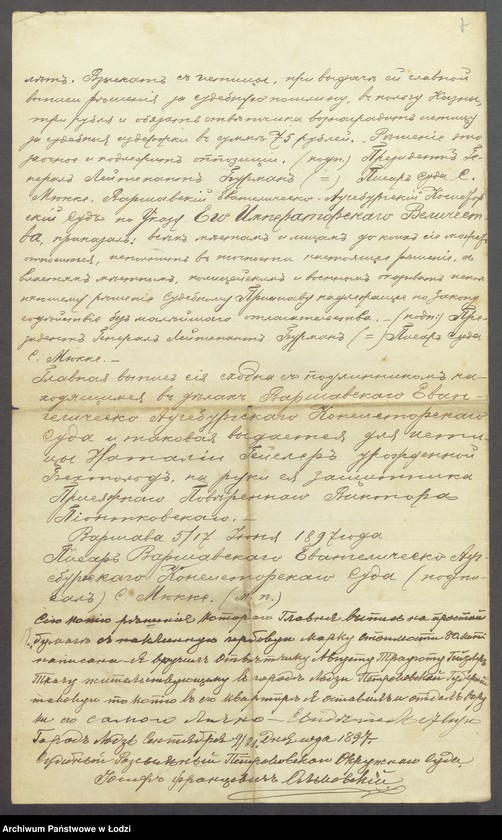 лѣтъ. Взыскать съ истицы, при выдачѣ ей главной
выписи рѣшенія за судебную пошлину, въ пользу Казны,
три рубля и обязать отвѣтчика вознаградить истицу
за судебныя издержки въ суммѣ 75 рублей. Рѣшеніе это
заочное и подлежитъ оппозиціи. (подп.) Президентъ Ге-
нералъ Лейтенантъ Бурманъ (=) Писарь Суда С.
Мюкке. Варшавскій Евангелическо-Аугсбургскій Консистор-
скій Судъ по Указу Его Императорскаго Величест-
ва, приказалъ: всѣмъ мѣстамъ и лицамъ до коихъ сіе можетъ
относиться, исполнить въ точности настоящее рѣшеніе, а
властямъ мѣстнымъ, полицейскимъ и военнымъ оказывать испол-
няющему рѣшеніе Судебному Приставу надлежащее по закону
содѣйствіе безъ малѣйшаго отлагательства. – (подп.) Пре-
зидентъ Генералъ Лейтенантъ Бурманъ (=) Писарь Суда
С. Мюкке. –
Главная выпись сія сходна съ подлинникомъ на-
ходящимся въ дѣлахъ Варшавскаго Еван-
гелическо Аугсбургскаго Консисторскаго
Суда и таковая выдается для исти-
цы Наталіи Гейслеръ урожденной
на руки ея защитника
Присяжнаго Повѣреннаго Виктора
Піонтковскаго. –
Варшава 5/17 Іюня 1897 года
Писарь Варшавскаго Евангелическо Ауг-
сбургскаго Консисторскаго Суда (подпи-
салъ) С. Мюкке. (М. п.)
Сію копію рѣшенія котораго Главная выпись на простой
бумагѣ съ наклеенную гербовую марку стоимости 80 коп.
написана я вручилъ Отвѣтчику Августу Гейслеръ
Ткачу жительствующему въ городѣ Лодзи Петроковской Губерніи
копію въ его квартирѣ я оставилъ и отдалъ въ ру-
ки со самого Лично –
Городъ Лодзь Сентября 9/21 Дня года 1897.
Судебный Разсыльный Петроковскаго Окружнаго Суда.
Іосифъ Францевичъ
Archiwum Państwowe w Łodzi